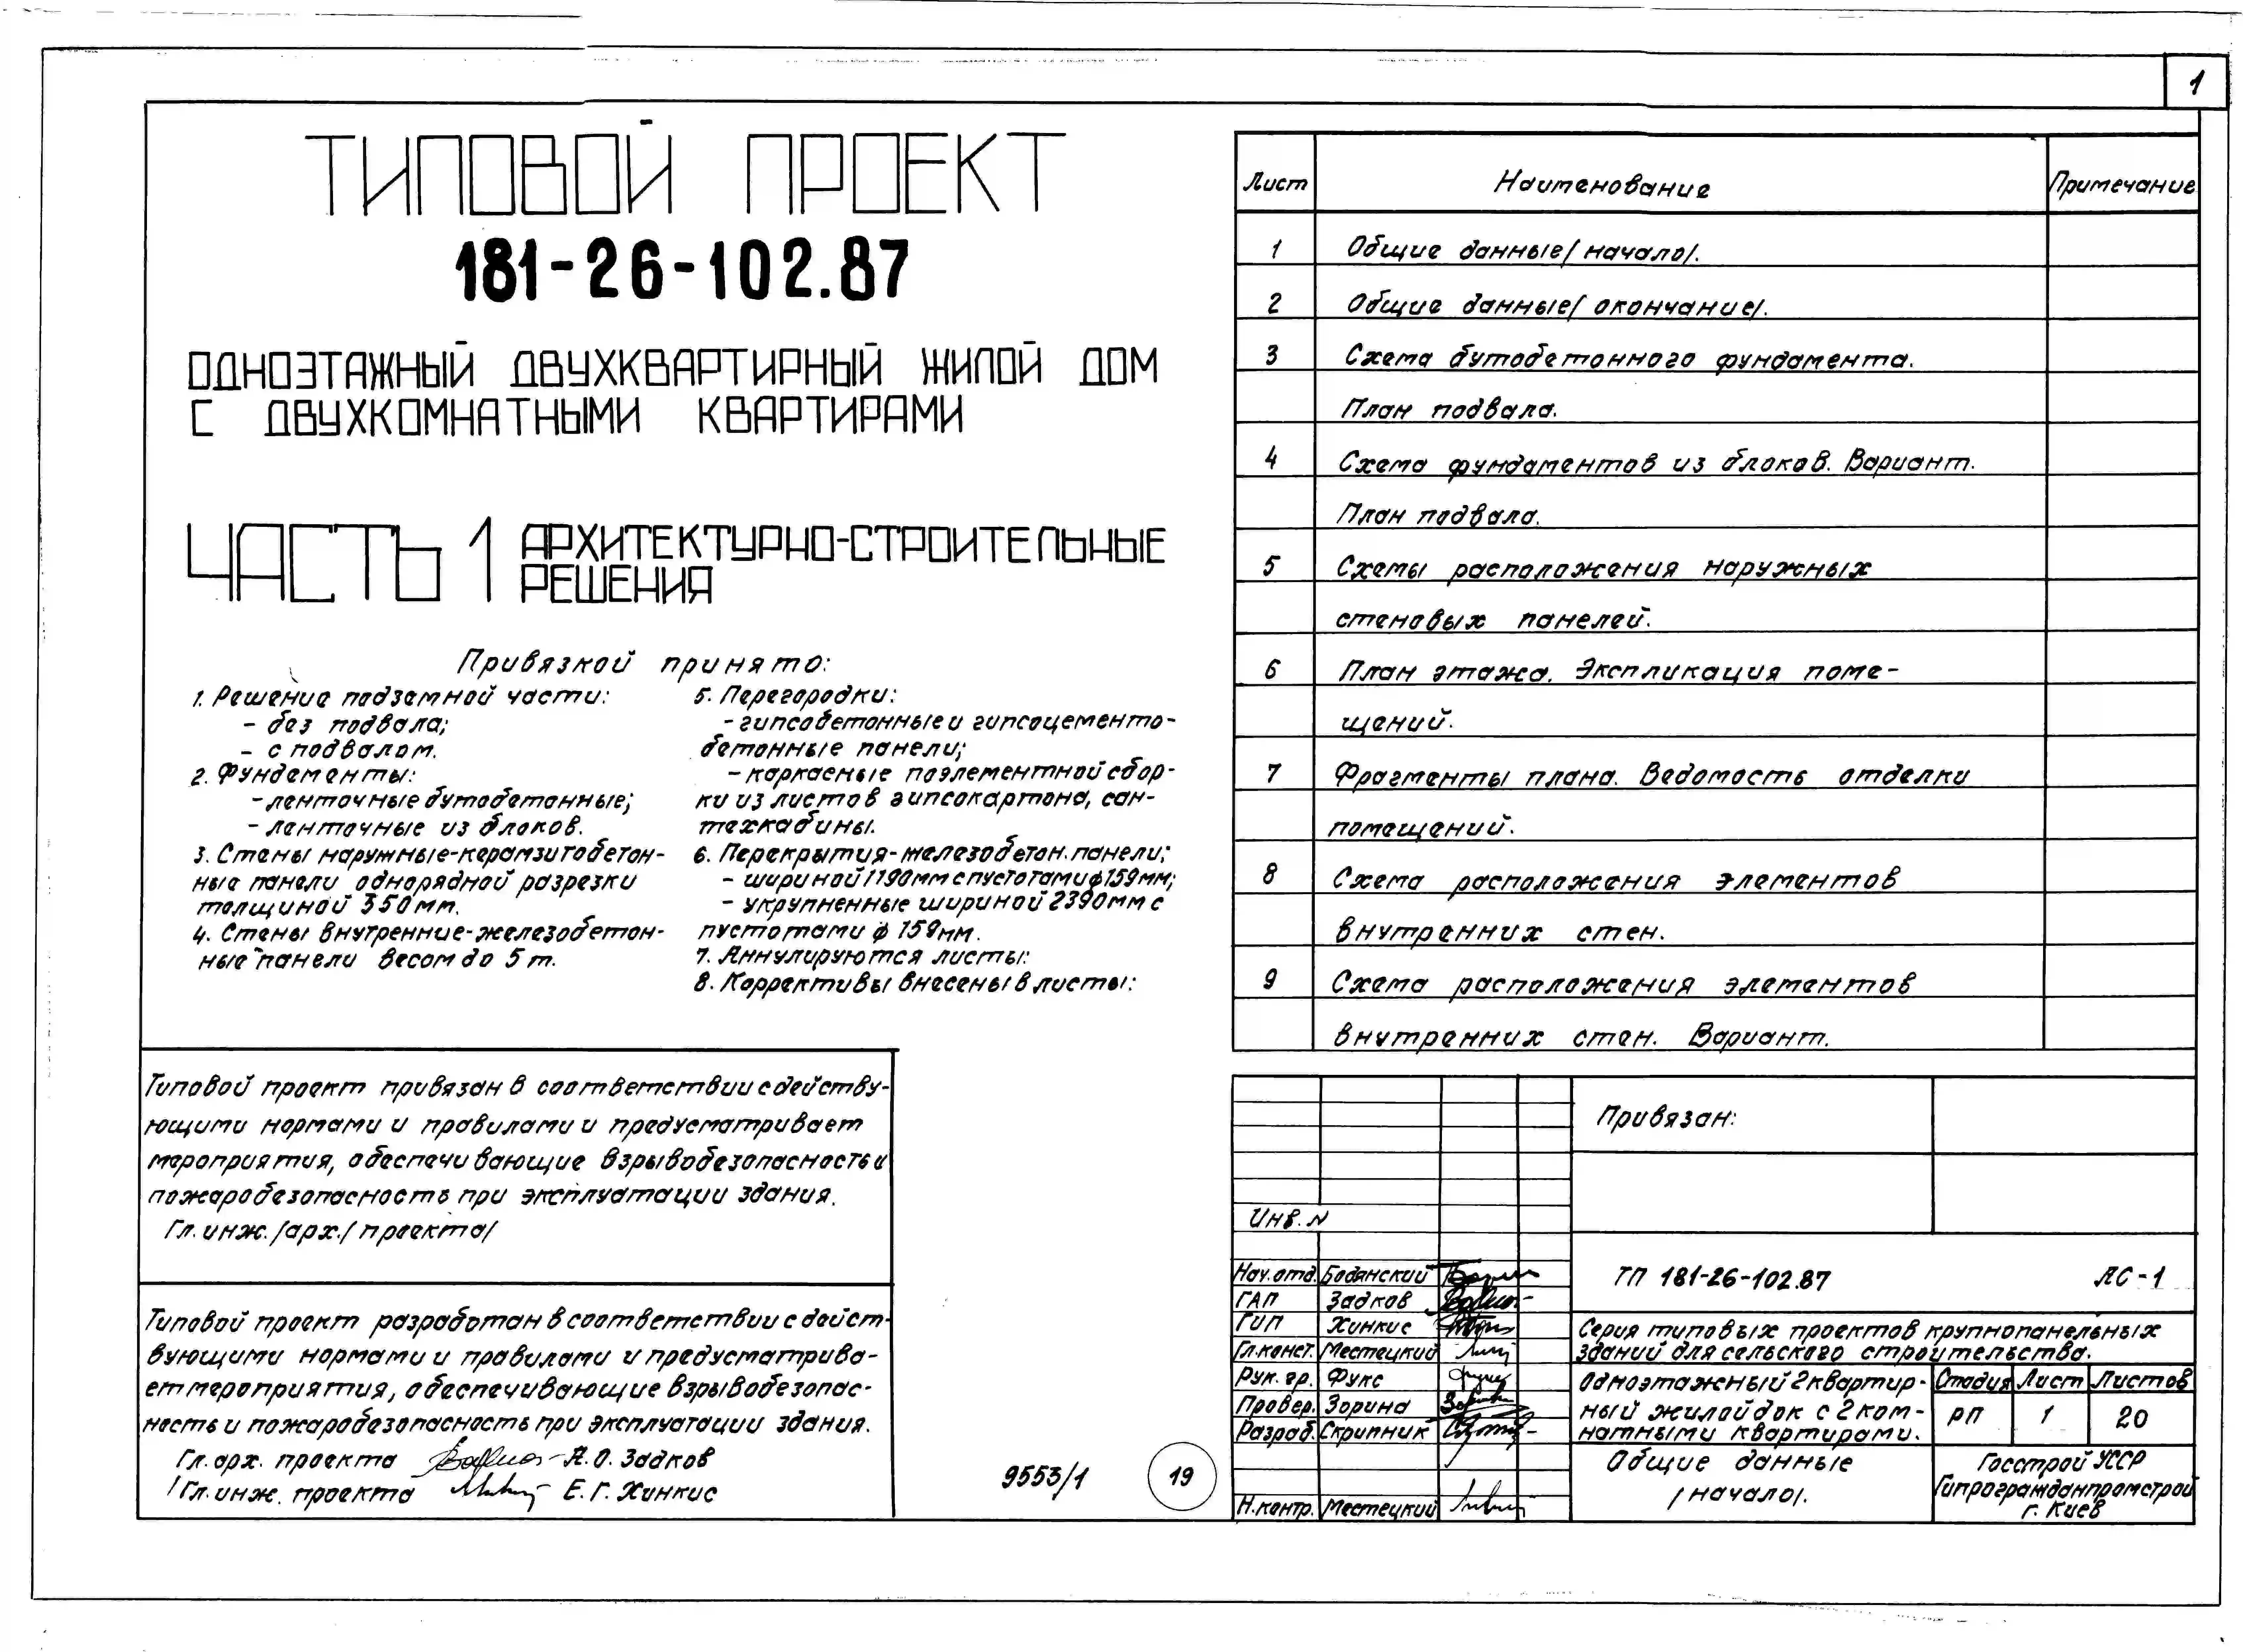 1
ТИПОВОЙ ПРОЕКТ
181-26-102.87
ОДНОЭТАЖНЫЙ ДВУХКВАРТИРНЫЙ ЖИЛОЙ ДОМ
С ДВУХКОМНАТНЫМИ КВАРТИРАМИ
ЧАСТЬ 1 АРХИТЕКТУРНО-СТРОИТЕЛЬНЫЕ
РЕШЕНИЯ
Привязкой принято:
1. Решение подземной части:
- без подвала;
- с подвалом.
2. Фундаменты:
- ленточные бутобетонные;
- ленточные из блоков.
3. Стены наружные-керамзитобетон-
ные панели однорядной разрезки
толщиной 350мм.
4. Стены внутренние-железобетон-
ные панели весом до 5 т.
5. Перегородки:
- гипсобетонные и гипсоцементно-
бетонные панели;
- каркасные поэлементной сбор-
ки из листов гипсокартона, сан-
техкабины.
6. Перекрытия-железобетон. панели;
- шириной 1190мм с пустотами ф159мм;
- укрупненные шириной 2390мм с
пустотами ф 159мм.
7. Аннулируются листы:
8. Коррективы внесены в листы:
Типовой проект привязан в соответствии с действу-
ющими нормами и правилами и предусматривает
мероприятия, обеспечивающие взрывобезопасность и
пожаробезопасность при эксплуатации здания.
Гл. инж. /арх./ проекта/
Типовой проект разработан в соответствии с дейст-
вующими нормами и правилами и предусматрива-
ет мероприятия, обеспечивающие взрывобезопас-
ность и пожаробезопасность при эксплуатации здания.
Гл. арх. проекта А.О. Задков
/Гл. инж. проекта Е.Г. Хинкис
9553/1
19
Лист Наименование Примечание
1 Общие данные/начало/.
2 Общие данные/окончание/.
3 Схема бутобетонного фундамента.
План подвала.
4 Схема фундаментов из блоков. Вариант.
План подвала.
5 Схемы расположения наружных
стеновых панелей.
6 План этажа. Экспликация поме-
щений.
7 Фрагменты плана. Ведомость отделки
помещений.
8 Схема расположения элементов
внутренних стен.
9 Схема расположения элементов
внутренних стен. Вариант.
Привязан:
Инв. N
Нач.отд. Бодянский
ГАП Задков
ГИП Хинкис
Гл.конст. Местецкий
Рук. гр. Фукс
Провер. Зорина
Разраб. Скрипник
Н.контр. Местецкий
ТП 181-26-102.87 АС-1
Серия типовых проектов крупнопанельных
зданий для сельского строительства.
Одноэтажный 2квартир-
ный жилой док с 2ком-
натными квартирами.
Стадия Лист Листов
РП 1 20
Общие данные
/начало/.
Госстрой УССР
Гипрогражданпромстрой
г. Киев